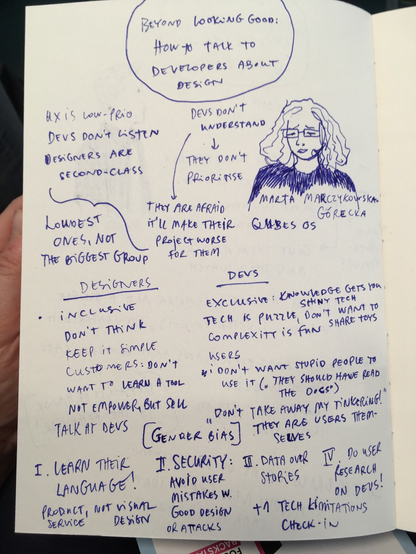 BEYOND LOOKING GOOD:
HOW TO TALK TO
DEVELOPERS ABOUT
DESIGN
UX IS LOW-PRIO
DEVS DON'T LISTEN
DESIGNERS ARE
SECOND-CLASS
LOUDEST
ONES, NOT
THE BIGGEST GROUP
DEVS DON'T
UNDERSTAND
THEY DON'T
PRIORITISE
THEY ARE AFRAID
IT'LL MAKE THEIR
PROJECT WORSE
FOR THEM
MARTA MARCZYKOWSKA-
GÓRECKA
QUBES OS
DESIGNERS
• INCLUSIVE
DON'T THINK
KEEP IT SIMPLE
CUSTOMERS: DON'T
WANT TO LEARN A TOOL
NOT EMPOWER, BUT SELL
TALK AT DEVS
DEVS
EXCLUSIVE: KNOWLEDGE GETS YOU
SHINY TECH
TECH IS PUZZLE, DON'T WANT TO
COMPLEXITY IS FUN SHARE TOYS
USERS
"I DON'T WANT STUPID PEOPLE TO
USE IT (" THEY SHOULD HAVE READ
THE DOCS")
"DON'T TAKE AWAY MY TINKERING!"
THEY ARE USERS THEM-
SELVES
[GENDER BIAS]
I. LEARN THEIR
LANGUAGE!
PRODUCT, NOT VISUAL
SERVICE DESIGN
II. SECURITY:
AVOID USER
MISTAKES W.
GOOD DESIGN
OR ATTACKS
III. DATA OVER
STORIES
IV. DO USER
RESEARCH
ON DEVS!
+1 TECH LIMITATIONS
CHECK-IN